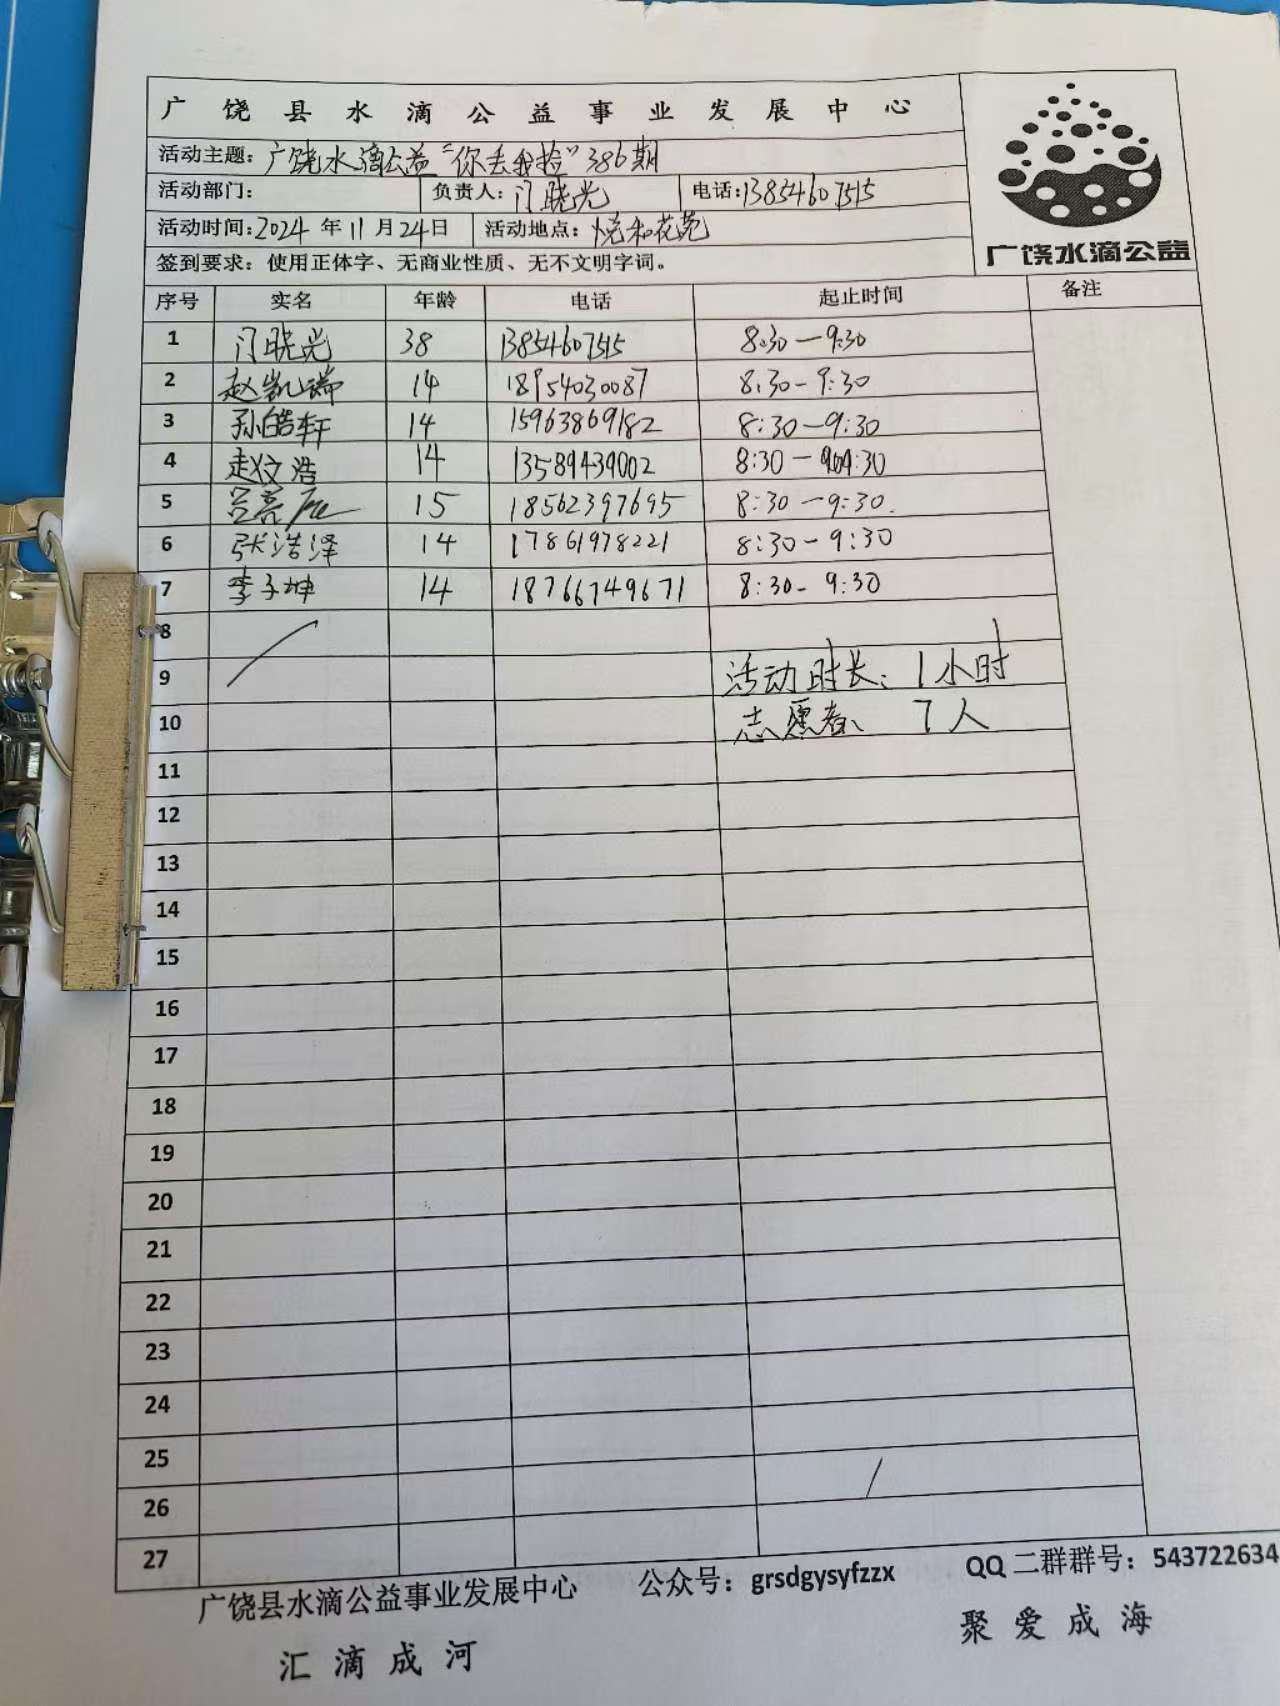 广饶县水滴公益事业发展中心
活动主题：广饶水滴公益“你丢我捡”386期
活动部门： 负责人：门晓光 电话：13854607515
活动时间：2024年11月24日 活动地点：悦和花苑
签到要求：使用正体字、无商业性质、无不文明字词。
广饶水滴公益
序号 实名 年龄 电话 起止时间 备注
1 门晓光 38 13854607515 8:30—9:30
2 赵凯瑞 14 18954030087 8:30-9:30
3 孙皓轩 14 15963869182 8:30-9:30
4 赵文浩 14 13589439002 8:30—9:30
5 吕亮 15 18562397695 8:30-9:30
6 张浩泽 14 17861978221 8:30-9:30
7 李子坤 14 18766749671 8:30-9:30
8
9 活动时长：1小时
10 志愿者、7人
11
12
13
14
15
16
17
18
19
20
21
22
23
24
25
26
27
广饶县水滴公益事业发展中心 公众号：grsdgysyfzzx QQ二群群号：543722634
汇滴成河 聚爱成海